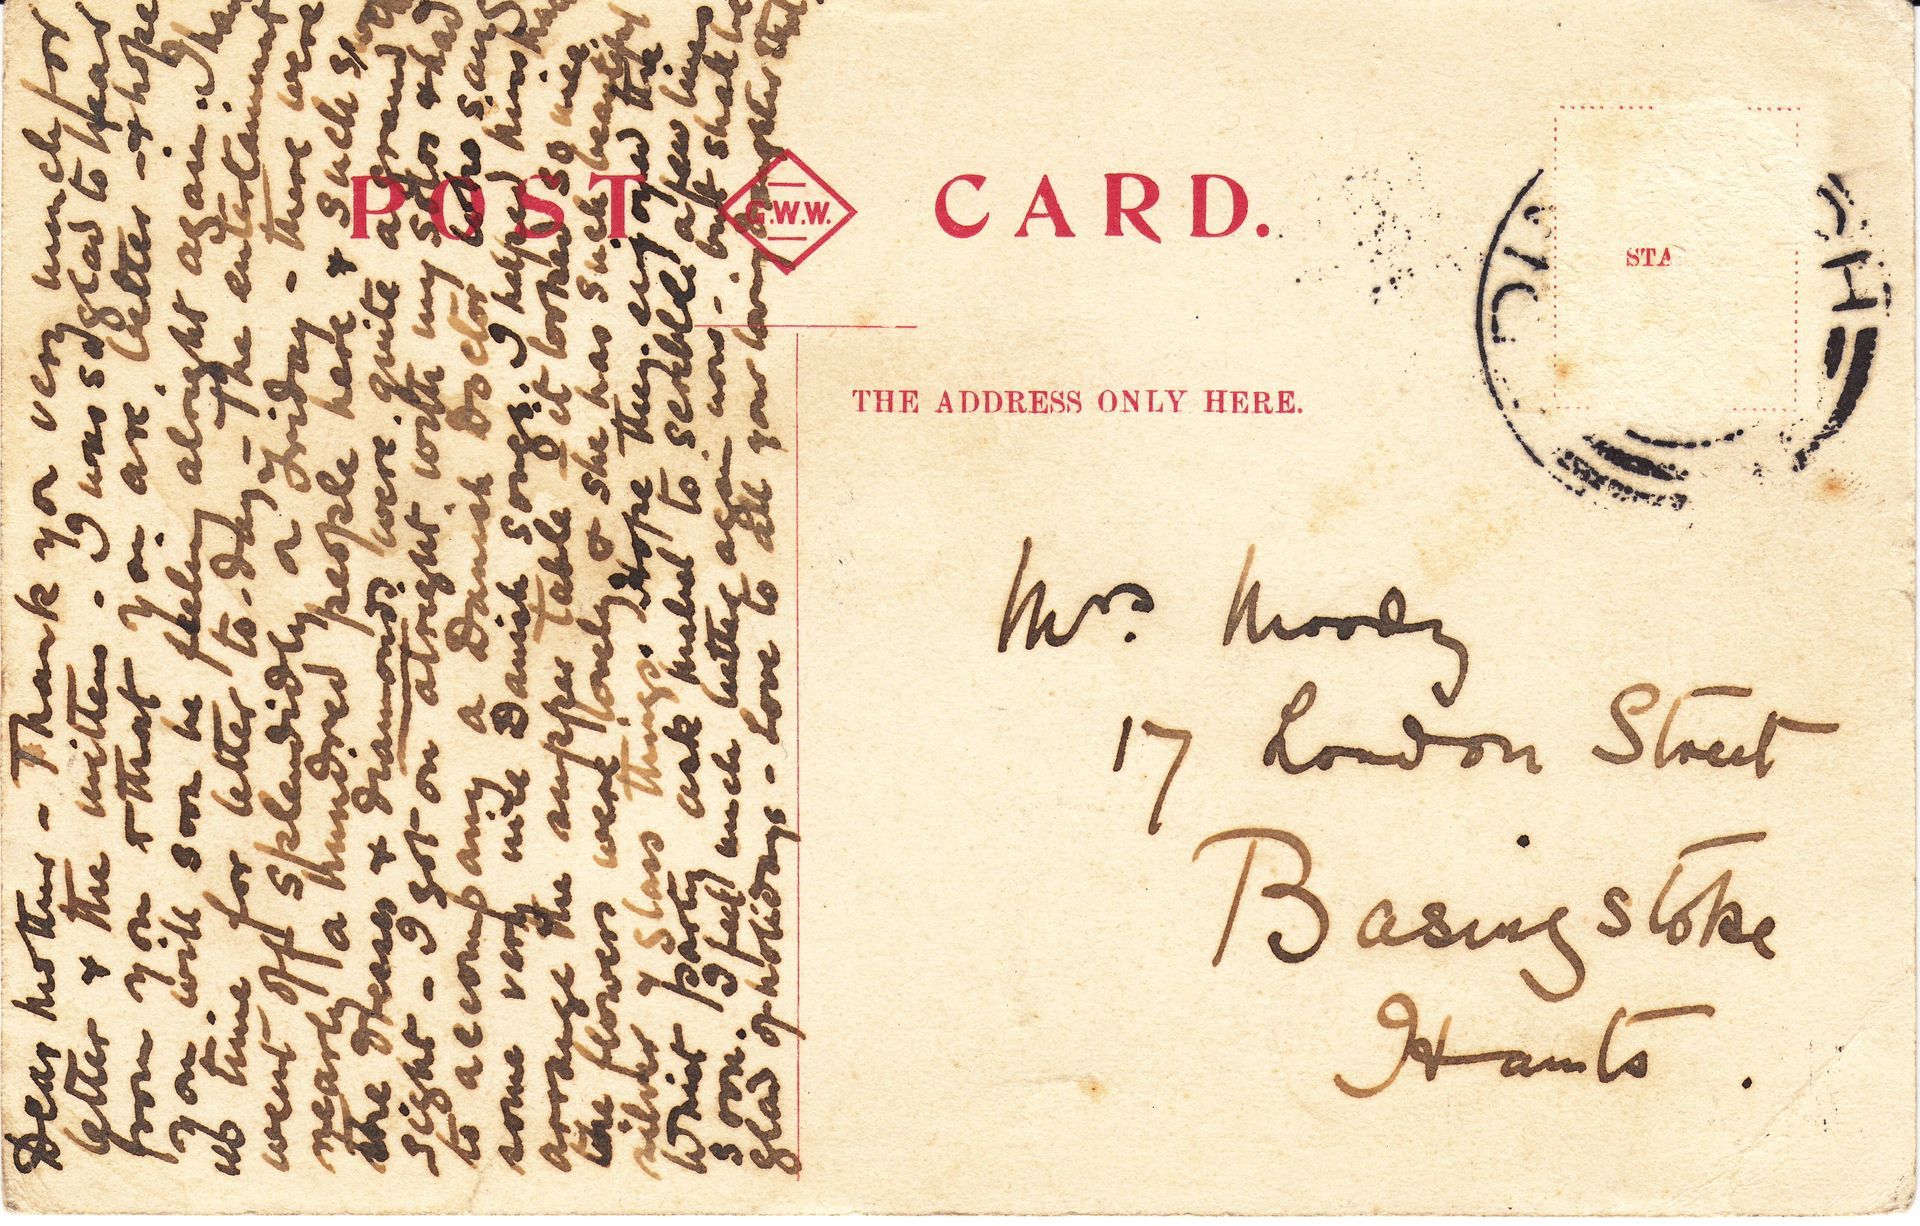 POST CARD.
G.W.W.
THE ADDRESS ONLY HERE.
STA
Mrs. Moody
17 London Street
Basingstoke
Hants.
Dear Mother - Thank you very much for
letter & the mittens - I was so glad to hear
from you & that you are better - & hope
you will soon be feeling alright again. I
up time for letter to-day - The entertainment
went off splendidly on Friday - there were
nearly a hundred people here & such
the dresses & diamonds were quite a grand
sight - I got on alright with my solos & had
to accompany a Danish Doctor who sang
some very nice Danish songs. I helped
arrange the supper table & it looked so nice
the flowers were lovely & she has such beautiful
silver & glass things. Hope they enjoyed the
Whist party ask Mabel to scribble a few lines
soon. I feel much better again now - but shall be
glad of holidays - Love to all your loving daughter